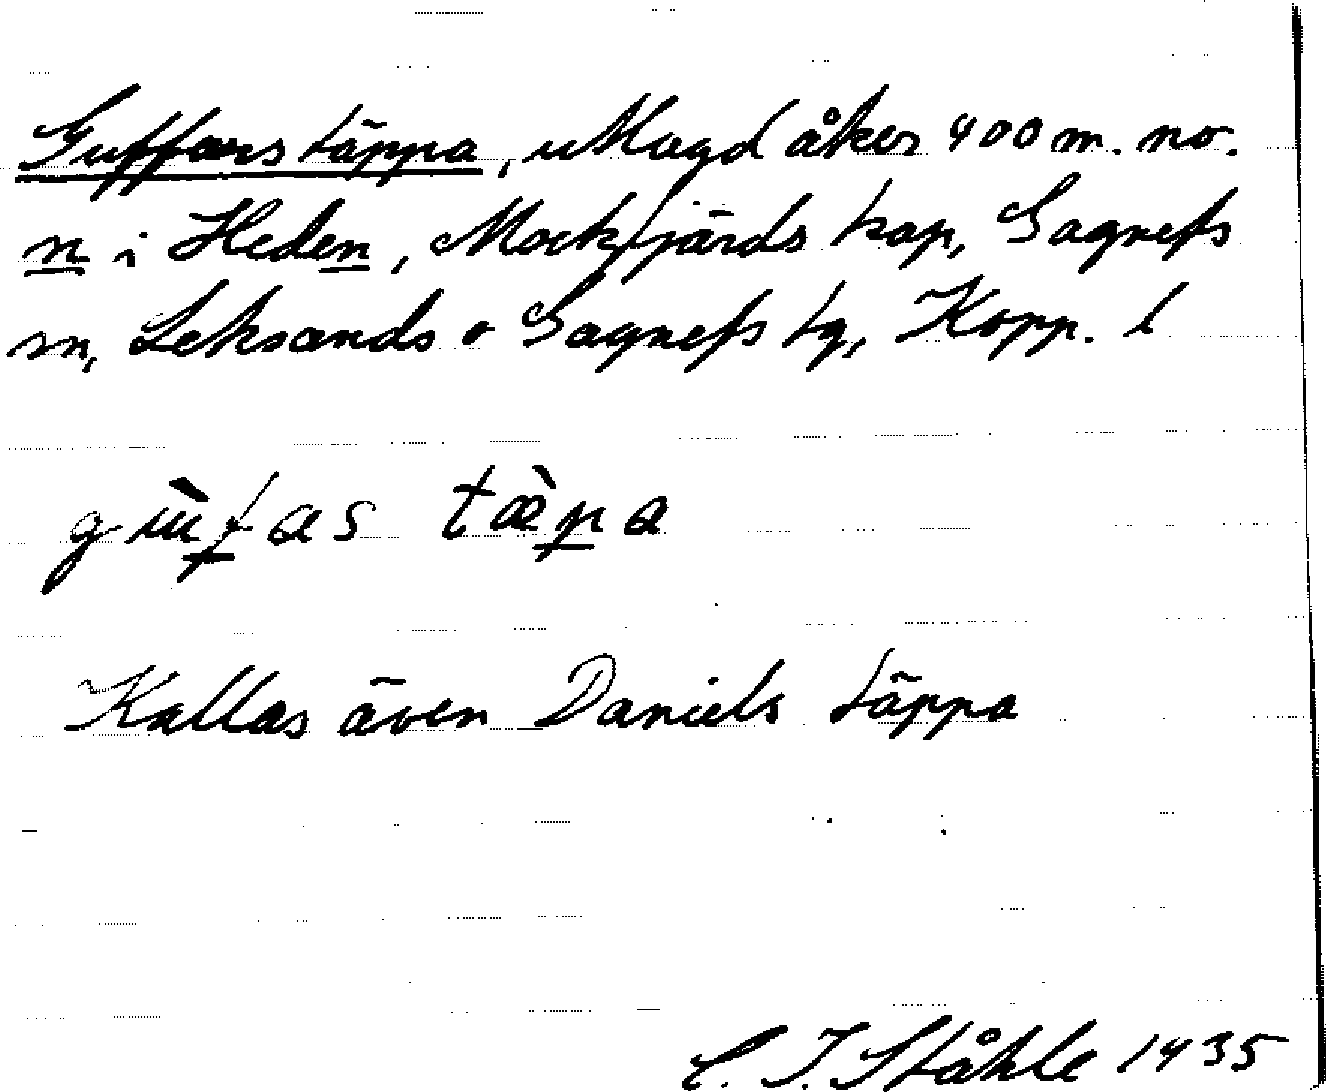 Guffars täppa, utlagd åker 400 m. no.
n i Heden, Mockfjärds kap, Gagnefs
sn, Leksands o Gagnefs tg, Kopp. l
gu̖fas tæ̀pa
Kallas även Daniels täppa
C. I. Ståhle 1935